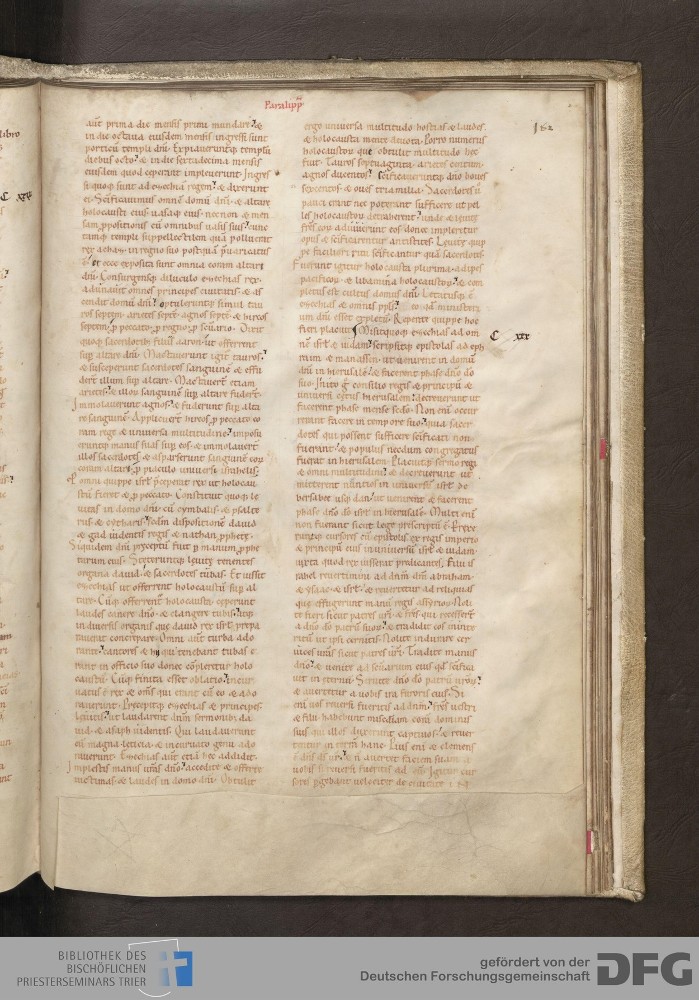 Paralipp̄
182
libro
C xxx
aut̄ prima die mensis primi mundare. &
in die octava eiusdem mensis ingressi sunt
porticū templi dn̄i. Expiaveruntq; templū
diebus octo. & in die sextadecima mensis
eiusdem quod ceperant impleverunt. Ingres
siquoq; sunt ad ezechiā regem. & dixerunt
ei. Sc̄ificavimus omnē domū dn̄i. & altare
holocausti eius uasaq; eius. necnon & men
sam ꝓpositionis cū omnibus uasis suis. cunc
tamq; templi suppellectilem quā polluerat
rex achaz in regno suo postquā p̄uaricatus
ē. & ecce exposita sunt omnia coram altari
dn̄i. Consurgensq; diluculo ezechias rex.
adunavit omnes principes civitatis. & as
cendit domū dn̄i. optuleruntq; simul tau
ros septem. arietes septē. agnos septē. & hircos
septem. ꝓ peccato. ꝓ regno. ꝓ sc̄uario. Dixit
quoq; sacerdotibus filiis aaron. ut offerrent
sup altare dn̄i. Mactaverunt igit̄ tauros.
& susceperunt sacerdotes sanguinē & effu
derūt illum sup altare. Mactaverūt etiam
arietes. & illoꝝ sanguinē sup altare fuderūt.
Immolaverunt agnos. & fuderunt sup alta
re sanguinē. Applicuerūt hircos ꝓ peccato co
ram rege & universa multitudine. imposu
eruntq; manus suas sup eos. & immolaverūt
illos sacerdotes. & asperserunt sanguinē eoꝝ
coram altari. ꝓ piaculo universi israhelis.
P omni quippe isrl̄ p̄ceperat rex ut holocau
stū fieret & ꝓ peccato. Constituit quoq; le
vitas in domo dn̄i cū cymbalis. & psalte
riis. & cytharis. sc̄dm dispositionē david
& gad uidentis regis & nathan ꝓphetę.
Siquidem dn̄i p̄ceptū fuit p manum ꝓphe
tarum eius. Steteruntq; levitę tenentes
organa david. & sacerdotes tubas. Et iussit
ezechias ut offerrent holocaustū sup al
tare. Cūq; offerrent̄ holocausta. ceperunt
laudes canere dn̄o. & clangere tubis. atq;
in diversis organis quę david rex isrl̄ prepa
raverat concrepare. Omni aut̄ turba ado
rante. cantores & hii qui tenebant tubas e
rant in officio suo donec cōpleretur holo
caustū. Cūq; finita esset oblatio. incur
vatus ē rex & om̄s qui erant cū eo & ado
raverunt. Precepitq; ezechias & principes
levitis. ut laudarent dn̄m sermonibus da
vid. & asaph uidentis. Qui laudaverunt
eū magna letitia. & incurvato genu ado
raverunt. Ezechias aut̄ etiā hec addidit.
Implestis manus ur̄as dn̄o. accedite & offerte
victimas. & laudes in domo dn̄i. Optulit
ergo universa multitudo hostias & laudes.
& holocausta mente devota. Porro numerus
holocaustoꝝ quę obtulit multitudo hic
fuit. Tauros septuaginta. arietes centum.
agnos ducentos. Sc̄ificaveruntq; dn̄o boves
sexcentos. & oves tria milia. Sacerdotes ū
pauci erant nec poterant sufficere ut pel
les holocaustoꝝ detraherent. unde & levitę
fr̄es eoꝝ adiuverunt eos donec impleretur
opus & sc̄ificarentur antistites. Levitę quip
pe faciliori ritu sc̄ificantur quā sacerdotes.
Fuerunt igitur holocausta plurima. adipes
pacificoꝝ. & libamina holocaustoꝝ. & com
pletus est cultus domus dn̄i. Letatusq; ē
ezechias & omnis pp̄ls eo qd̄ ministeri
um dn̄i esset exꝓletū. Repente quippe hoc
fieri placuit. Misit quoq; ezechias ad om
nē isrl̄. & iudam. scripsitq; epistolas ad eph
raim & manassen. ut venirent in domū
dn̄i in hierusalē. & facerent phase dn̄o do
suo. Inito ḡ consilio regis & principū &
universi cętus hierusalem. decreverunt ut
facerent phase mense sc̄do. Non eni occur
rerant facere in tempore suo. quia sacer
dotes qui possent sufficere sc̄ificati non
fuerant. & populus necdum congregatus
fuerat in hierusalem. Placuitq; sermo regi
& omni multitudini. & decreverunt ut
mitterent nuntios in universū isrl̄ de
bersabee usq; dan. ut venirent & facerent
phase dn̄o do isrl̄ in hierusalē. Multi eni
non fuerant sicut lege prescriptū ē. Perrex
eruntq; cursores cū epistolis ex regis imperio
& principū eius in universū isrl̄ & iudam.
iuxta quod rex iusserat predicantes. Filii is
rahel revertimini ad dn̄m dm̄ abraham.
& ysaac. & isrl̄. & revertetur ad reliquias
quę effugerunt manū regis assyrioꝝ. Noli
te fieri sicut patres ur̄i. & fr̄es qui recesser̄
a dn̄o do patrū suoꝝ. & tradidit eos in inte
ritū ut ipsi cernitis. Nolite indurare cer
vices ur̄as sicut patres ur̄i. Tradite manus
dn̄o. & venite ad sc̄uarium eius qd̄ sc̄ifica
vit in ęternū. Servite dn̄o do patrū ur̄oꝝ.
& avertetur a vobis ira furoris eius. Si
eni vos reversi fueritis ad dn̄m. fr̄es vestri
& filii habebunt misc̄diam corā dominis
suis qui illos duxerunt captivos. & rever
tentur in terrā hanc. Pius eni & clemens
ē dn̄s ds̄ ur̄. & n̄ avertet faciem suam a
vobis si reversi fueritis ad eū. Igitur cur
sores pgebant velociter de civitate i
C xxx
BIBLIOTHEK DES
BISCHÖFLICHEN
PRIESTERSEMINARS TRIER
gefördert von der
Deutschen Forschungsgemeinschaft
DFG